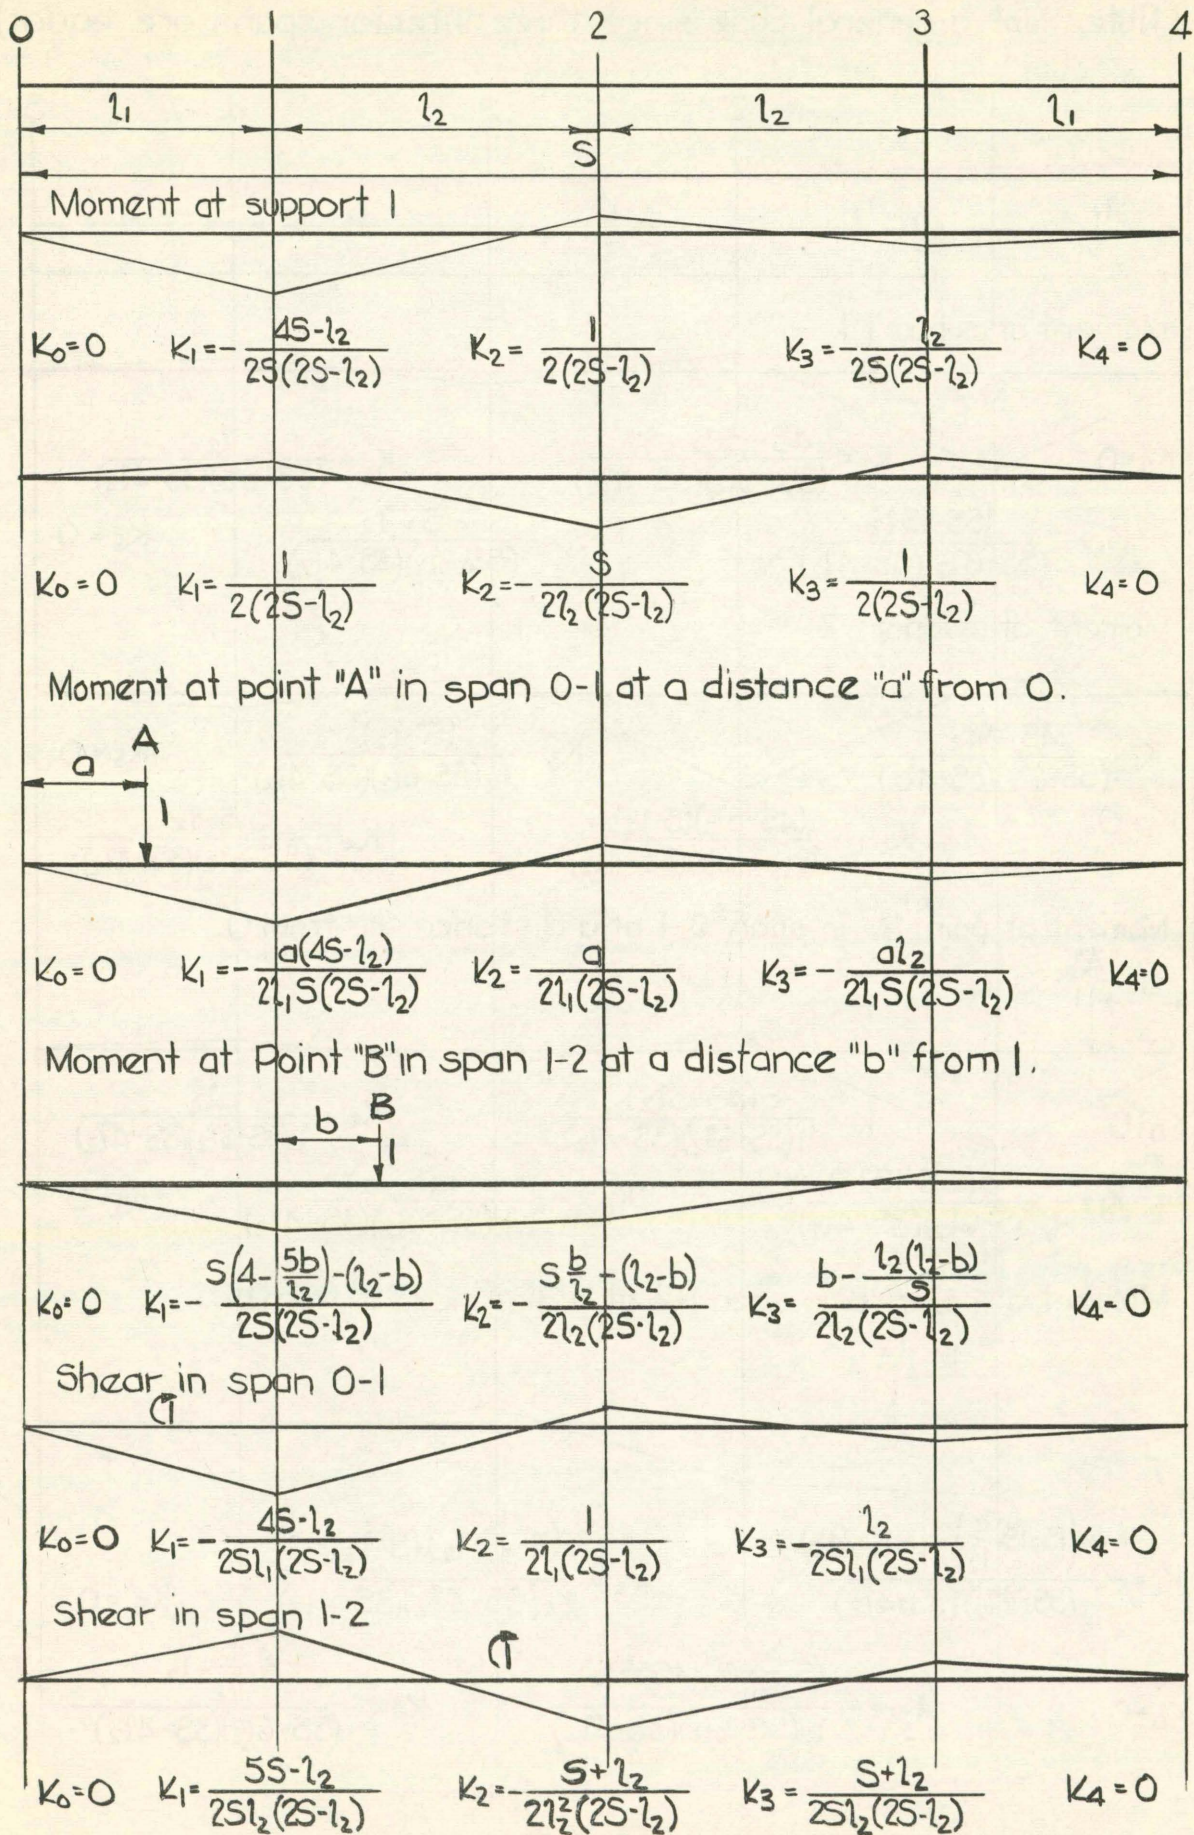 0 2 3 4
l₁ l₂ l₂ l₁
S
Moment at support 1
K₀=0 K₁=-(4S-l₂)/(2S(2S-l₂)) K₂=1/(2(2S-l₂)) K₃=-l₂/(2S(2S-l₂)) K₄=0
K₀=0 K₁=1/(2(2S-l₂)) K₂=-S/(2l₂(2S-l₂)) K₃=1/(2(2S-l₂)) K₄=0
Moment at point "A" in span 0-1 at a distance "a" from 0.
A
a
1
K₀=0 K₁=-a(4S-l₂)/(2l₁S(2S-l₂)) K₂=a/(2l₁(2S-l₂)) K₃=-al₂/(2l₁S(2S-l₂)) K₄=0
Moment at Point "B" in span 1-2 at a distance "b" from 1.
B
b
1
K₀=0 K₁=-(S(4-5b/l₂)-(l₂-b))/(2S(2S-l₂)) K₂=-(S b/l₂-(l₂-b))/(2l₂(2S-l₂)) K₃=(b-l₂(l₂-b)/S)/(2l₂(2S-l₂)) K₄=0
Shear in span 0-1
K₀=0 K₁=-(4S-l₂)/(2Sl₁(2S-l₂)) K₂=1/(2l₁(2S-l₂)) K₃=-l₂/(2Sl₁(2S-l₂)) K₄=0
Shear in span 1-2
K₀=0 K₁=(5S-l₂)/(2Sl₂(2S-l₂)) K₂=-(S+l₂)/(2l₂²(2S-l₂)) K₃=(S+l₂)/(2Sl₂(2S-l₂)) K₄=0